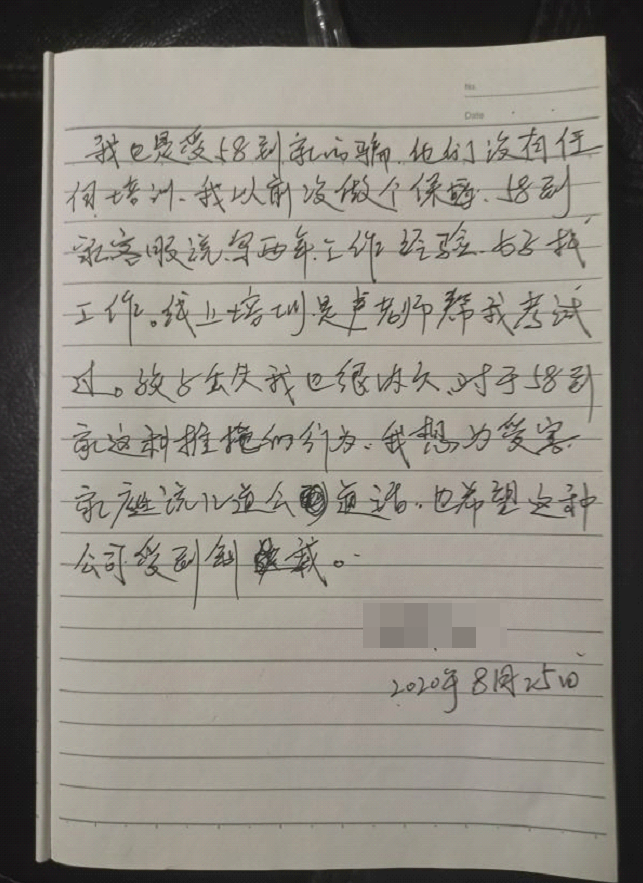 No
Date
我也是受58到家的骗、他们没有任
何培训、我以前没做个保姆、58到
家客服说、写两年工作经验、好找
工作。线上培训是卢老师帮我考试
过。发生丢失我也很内疚、对于58到
家这种推搪的行为、我想为受害
家庭说几道公道话、也希望这种
公司受到制裁。
2020年8月25日